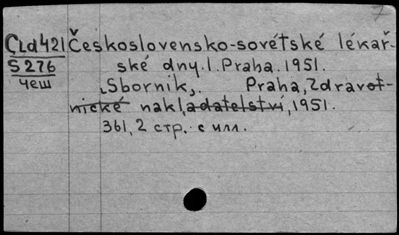 7
Čld421 Československo-sovětské lékař-
S276 ské dny. 1. Praha. 1951.
чеш „Sborník„. Praha, Zdravot-
nické nakladatelství, 1951.
361, 2 стр. с илл.